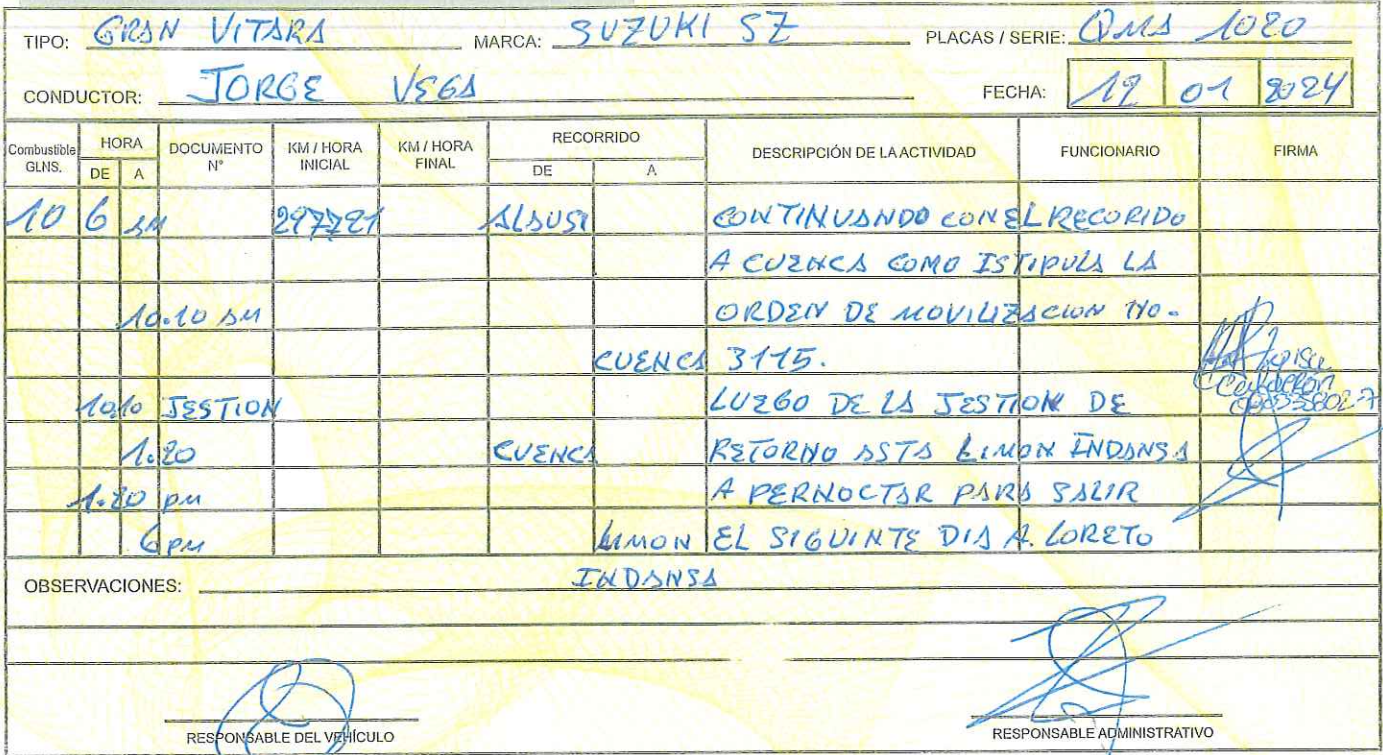 TIPO: GRAN VITARA MARCA: SUZUKI SZ PLACAS / SERIE: QMA 1020
CONDUCTOR: JORGE VEGA FECHA: 12 01 2024
Combustible GLNS. HORA DE A DOCUMENTO N° KM / HORA INICIAL KM / HORA FINAL RECORRIDO DE A DESCRIPCIÓN DE LA ACTIVIDAD FUNCIONARIO FIRMA
10 6 AM ALAUSI CONTINUANDO CON EL RECORIDO
A CUENCA COMO ISTIPULA LA
10.10 AM ORDEN DE MOVILIZACION NO.
CUENCA 3115.
10.10 JESTION LUEGO DE LA JESTION DE
1.20 CUENCA RETORNO ASTA LIMON INDANSA
1.20 PM A PERNOCTAR PARA SALIR
6 PM LIMON EL SIGUINTE DIA A. LORETO
OBSERVACIONES: INDANSA
RESPONSABLE DEL VEHÍCULO RESPONSABLE ADMINISTRATIVO